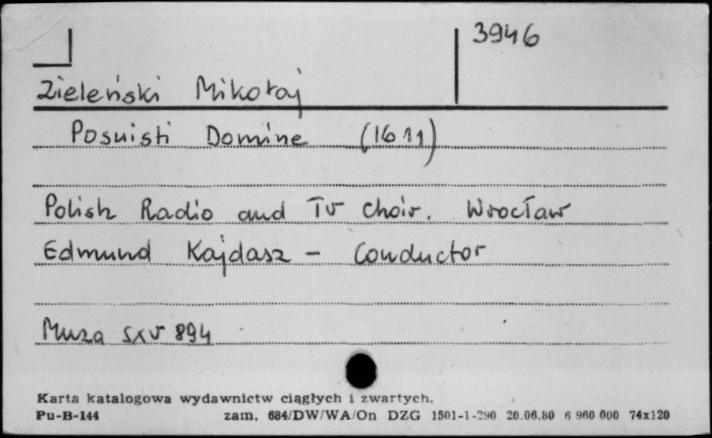 3946
Zieleński Mikołaj
Posuisti Domine (1611)
Polish Radio and TV Choir. Wrocław
Edmund Kajdasz - Conductor
Muza SXV 894
Karta katalogowa wydawnictw ciągłych i zwartych.
Pu-B-144 zam. 684/DW/WA/On DZG 1501-1-290 20.06.80 6 960 000 74x120